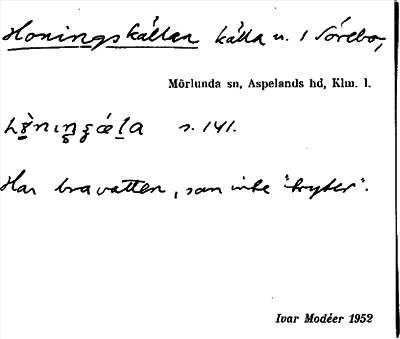 Honingskällan källa n. i Sörebo,
Mörlunda sn, Aspelands hd, Klm. l.
s. 141.
Har bra vatten, som inte "tryter".
Ivar Modéer 1952